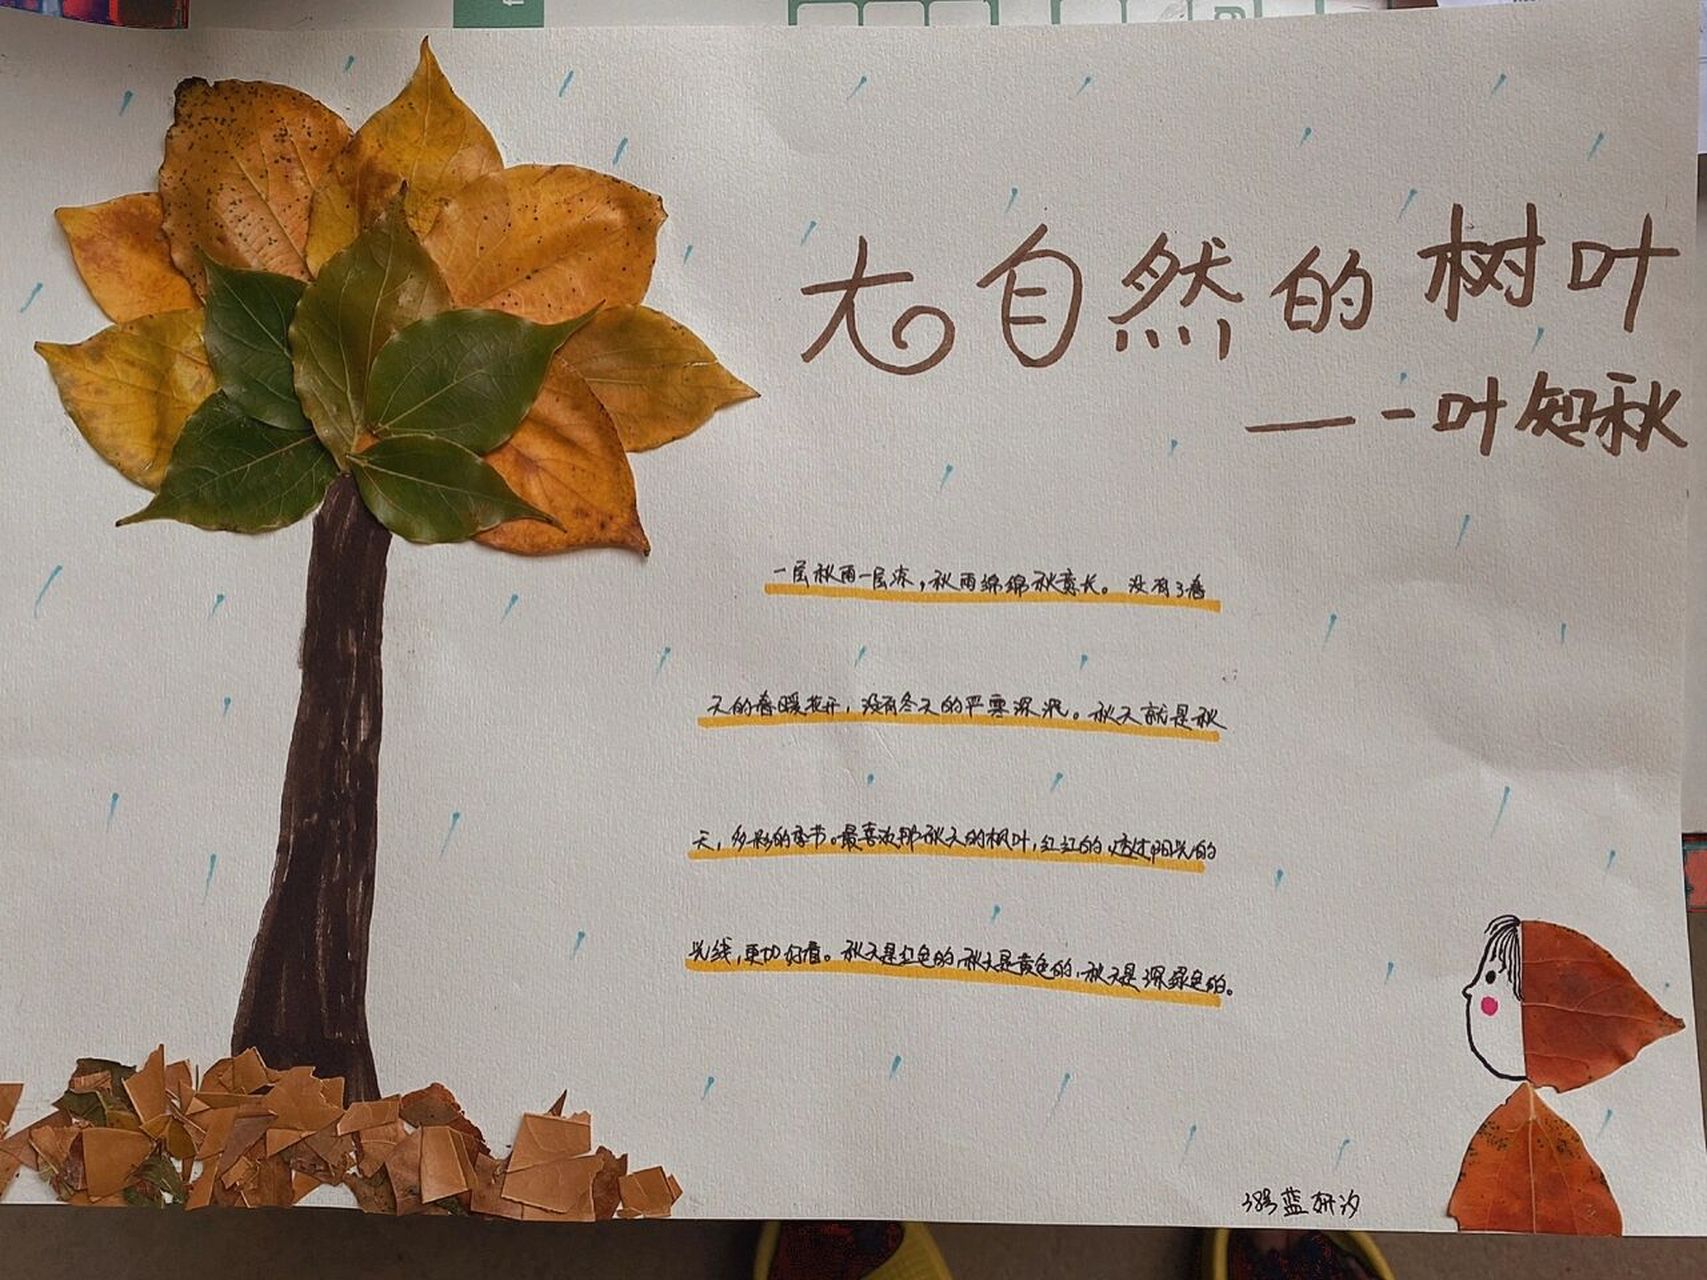 大自然的树叶
——一叶知秋
一层秋雨一层凉，秋雨绵绵秋意长。没有了春
天的春暖花开，没有冬天的严寒深沉。秋天就是秋
天，多彩的季节。最喜欢那秋天的枫叶，红红的，透过阳光的
光线，更加好看。秋天是红色的，秋天是黄色的，秋天是深绿色的。
38号蓝妍汐